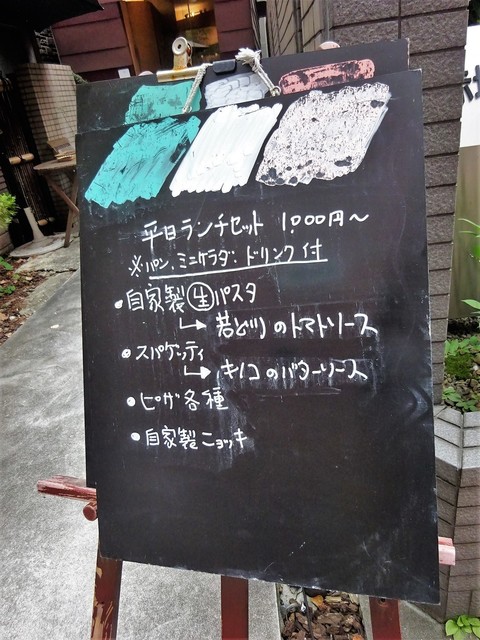 平日ランチセット 1,000円〜
※パン、ミニサラダ、ドリンク付
・自家製生パスタ
↳若どりのトマトソース
・スパゲッティ
↳キノコのバターソース
・ピザ各種
・自家製ニョッキ